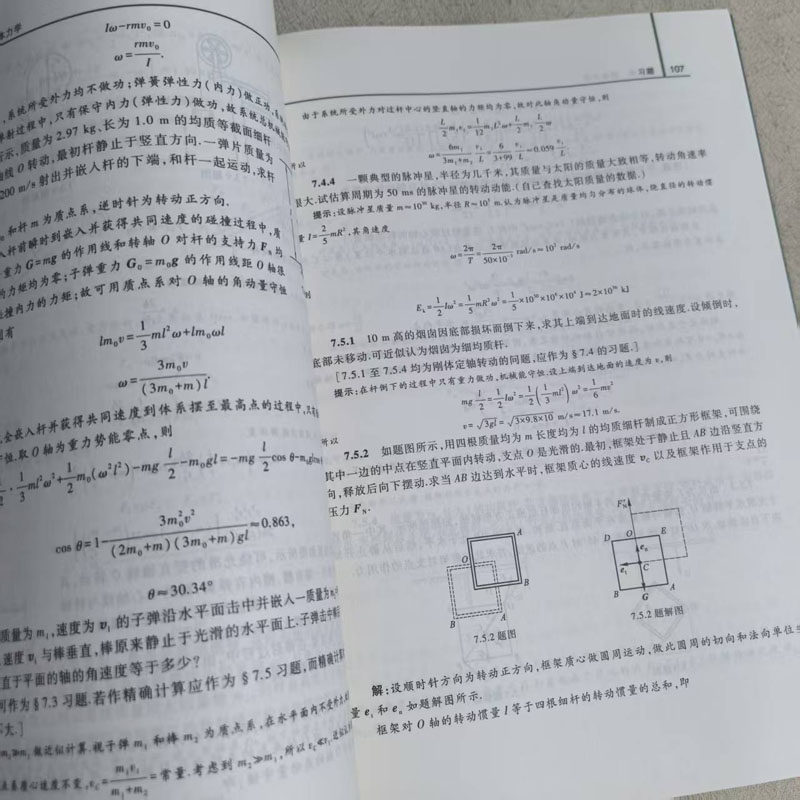 体力学
lω-rmv₀=0
ω=rmv₀/I.
系统所受外力均不做功;弹簧弹性力(内力)做正功,
射过程中,只有保守内力(弹性力)做功,故系统总机械
所示,质量为 2.97 kg,长为 1.0 m 的均质等截面细杆
轴线 O 转动,最初杆静止于竖直方向.一弹片质量为
200 m/s 射出并嵌入杆的下端,和杆一起运动,求杆
和杆 m 为质点系,逆时针为转动正方向.
入杆前瞬时到嵌入并获得共同速度的碰撞过程中,质
重力 G=mg 的作用线和转轴 O 对杆的支持力 Fₙ 均
的力矩均为零;子弹重力 G₀=m₀g 的作用线距 O 轴很
碰撞内力的力矩;故可用质点系对 O 轴的角动量守恒
有
lm₀v=1/3 ml²ω+lm₀ωl
ω=3m₀v/(3m₀+m)l.
嵌入杆并获得共同速度到体系摆至最高点的过程中,只有
恒.取 O 轴为重力势能零点,则
1/2·1/3 ml²ω²+1/2 m₀(ω²l²)-mg l/2-m₀gl=-mg l/2 cos θ-m₀gl
cos θ=1-3m₀²v²/(2m₀+m)(3m₀+m)gl≈0.863,
θ≈30.34°
质量为 m₁,速度为 v₁ 的子弹沿水平面击中并嵌入一质量为
速度 v₁ 与棒垂直,棒原来静止于光滑的水平面上.子弹击中棒
直于平面的轴的角速度等于多少?
可作为§7.3 习题.若作精确计算应作为§7.5 习题,而精确计
不太.]
m₂≫m₁ 做近似计算.视子弹 m₁ 和棒 m₂ 为质点系,在水平面内不受外力,
点系质心速度不变,v_c=m₁v₁/(m₁+m₂)=常量.考虑到 m₂≫m₁,所以 v_c≪v₁,
习题 107
由于系统所受外力对过杆中心的竖直轴的力矩均为零,故对此轴角动量守恒,则
L/2 m₁v₁=1/12 m₂L²ω+L/2 m₁ L/2 ω
ω=6m₁/(3m₁+m₂) v₁/L=6/(3+99) v₁/L≈0.059 v₁/L.
7.4.4 一颗典型的脉冲星,半径为几千米,其质量与太阳的质量大致相等,转动角速率
很大.试估算周期为 50 ms 的脉冲星的转动动能.(自己查找太阳质量的数据.)
提示:设脉冲星质量 m≈10³⁰ kg,半径 R≈10³ m.认为脉冲星是质量均匀分布的球体,绕直径的转动惯
量 I=2/5 mR²,其角速度
ω=2π/T=2π/(50×10⁻³) rad/s≈10² rad/s
Eₖ=1/2 Iω²=1/5 mR²ω²=1/5×10³⁰×10⁶×10⁴ J≈2×10³⁶ kJ
7.5.1 10 m 高的烟囱因底部损坏而倒下来,求其上端到达地面时的线速度.设倾倒时,
底部未移动.可近似认为烟囱为细均质杆.
[7.5.1 至 7.5.4 均为刚体定轴转动的问题,应作为§7.4 的习题.]
提示:在杆倒下的过程中只有重力做功,机械能守恒.设上端到达地面的速度为 v,则
mg l/2=1/2 Iω²=1/2(1/3 ml²)ω²=1/6 mv²
v=√3gl=√3×9.8×10 m/s≈17.1 m/s.
7.5.2 如题图所示,用四根质量均为 m 长度均为 l 的均质细杆制成正方形框架,可围绕
其中一边的中点在竖直平面内转动,支点 O 是光滑的.最初,框架处于静止且 AB 边沿竖直方
向,释放后向下摆动.求当 AB 边达到水平时,框架质心的线速度 v_c 以及框架作用于支点的
压力 Fₙ.
A
O
B
B A
7.5.2 题图
Fₙ
D O E
eₙ
eₜ C
B G A
7.5.2 题解图
解:设顺时针方向为转动正方向,框架质心做圆周运动,做此圆周的切向和法向单位
量 eₜ 和 eₙ 如题解图所示.
框架对 O 轴的转动惯量 I 等于四根细杆的转动惯量的总和,即